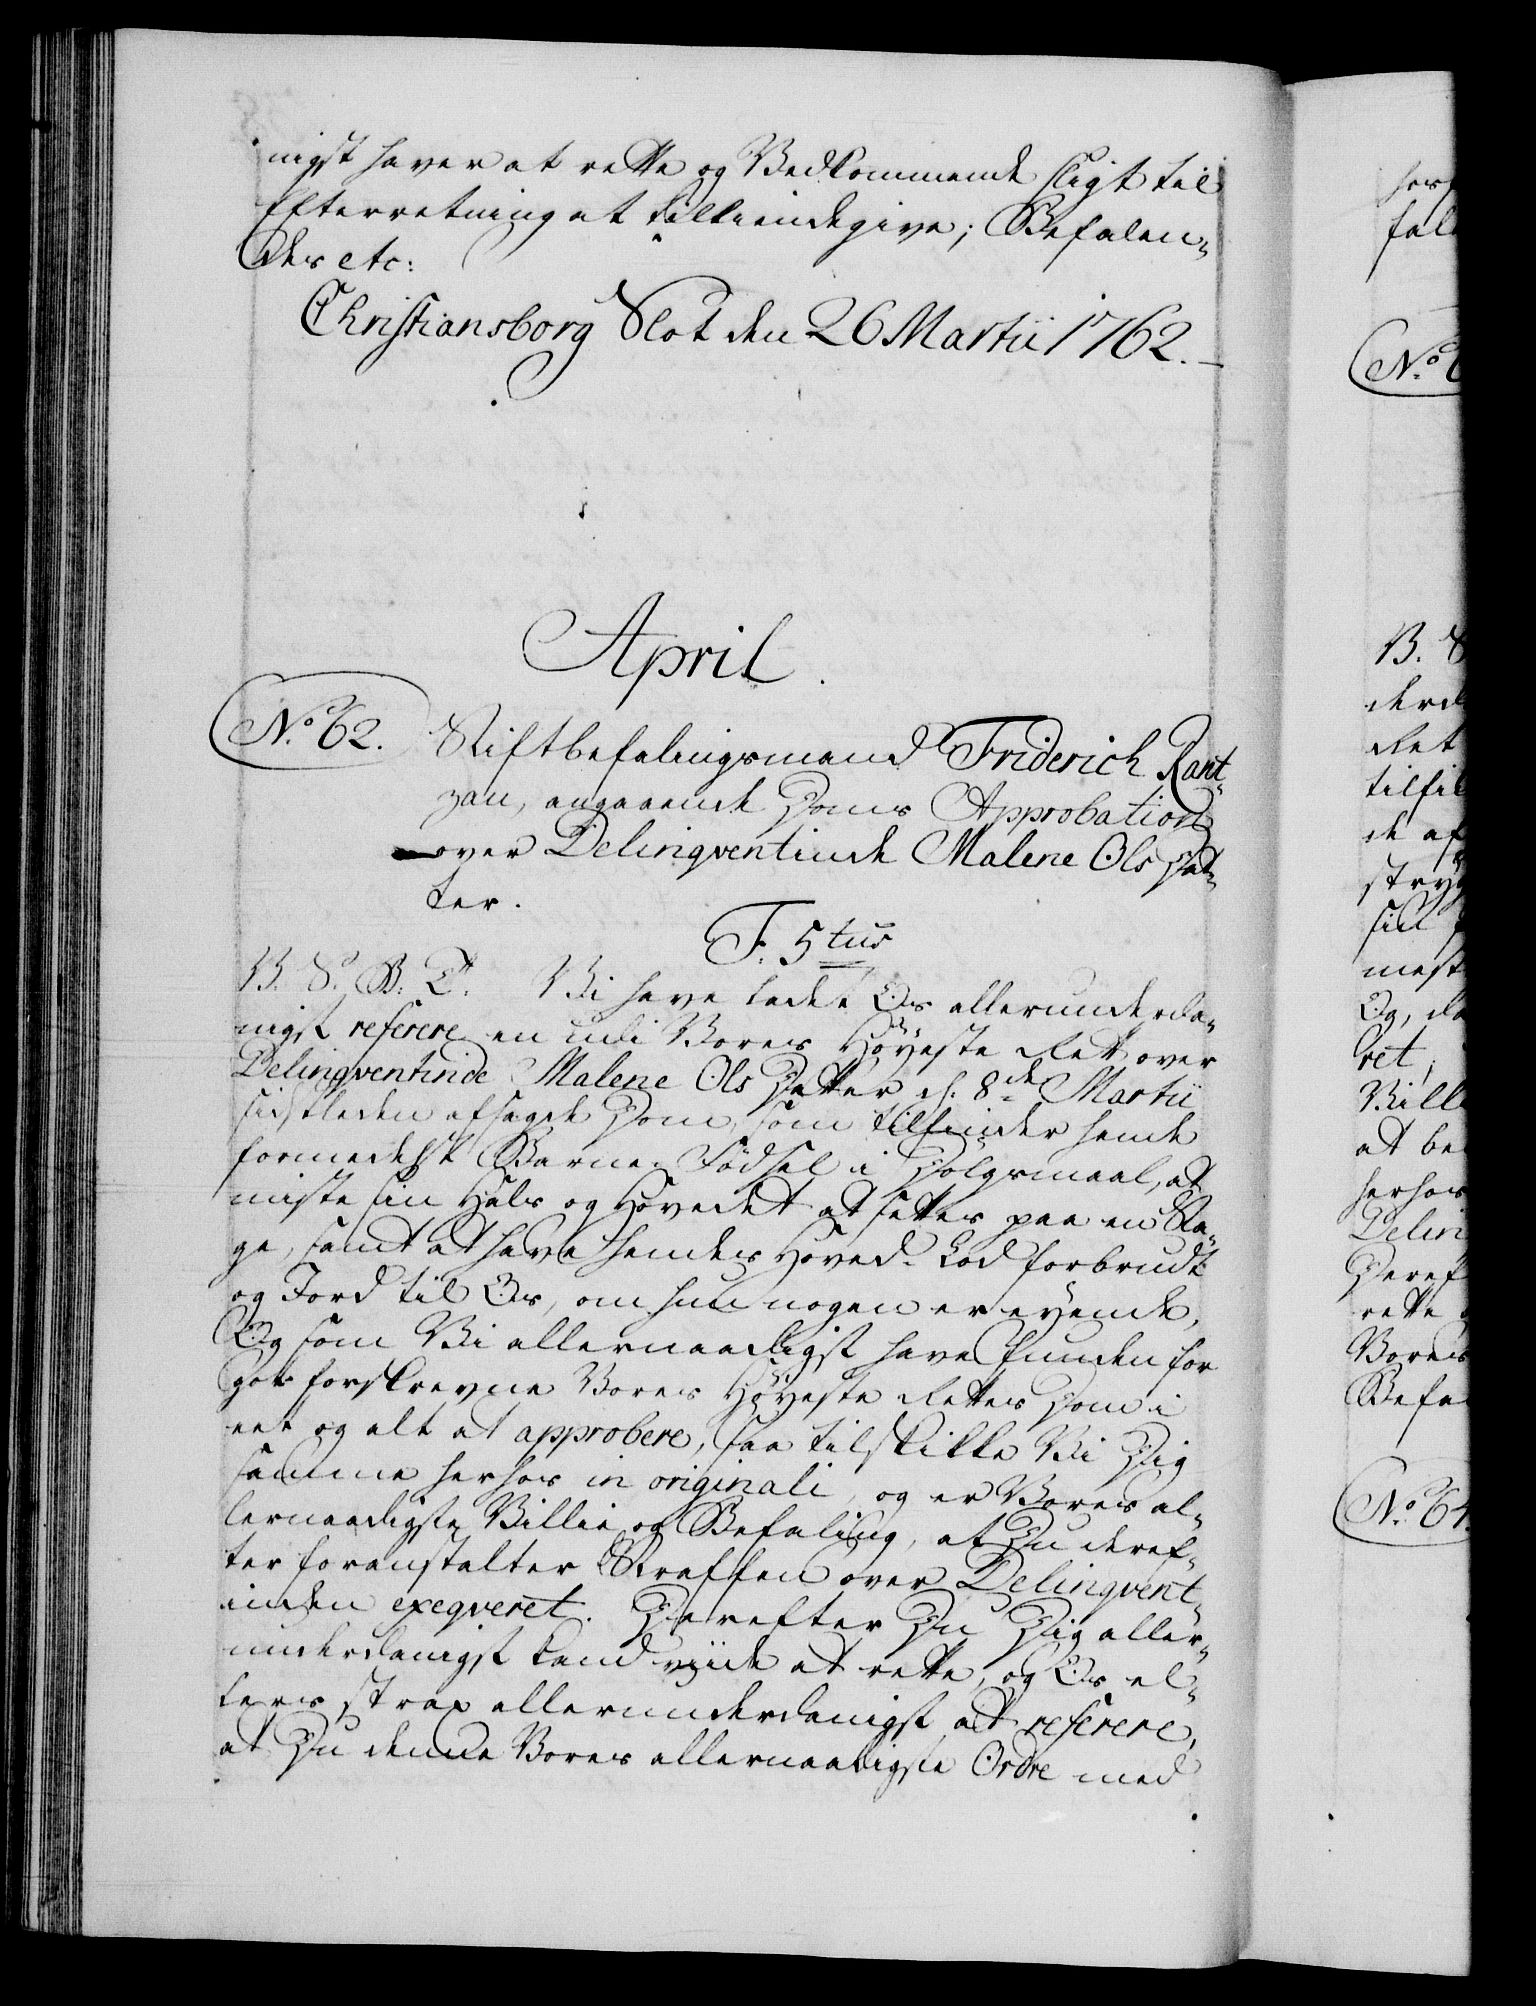 nigst haver at rette og Vedkommende sligt til
Efterretning at tilkiendegive; Befalen„
des etc:
Christiansborg Slot den 26 Martii 1762.
April.
No. 62. Stiftbefalingsmand Friderich Rant„
zau, angaaende Doms Approbation
over Delinqventinde Malene Ols Dat„
ter.
F. 5tus
V. S. B. T. Vi have ladet Os allerunderda„
nigst referere en udi Vores Höyeste Ret over
Delinqventinde Malene Ols Datter d. 8de Martii
sidstleden afsagde Dom, som tilfinder hende
formedelst Barne-Födsel i Dölgsmaal, at
miste sin Hals og Hovedet at settes paa en Sta„
ge, samt at have hendes Hoved-Lod forbrudt
og Jord til Os, om hun nogen er eyende,
Og som Vi allernaadigst have funden for
got forskrevne Vores Höyeste Rettes Dom i
eet og alt at approbere, saa tilskikke Vi Dig
samme herhos in originali, og er Vores al„
lernaadigste Villie og Befaling, at Du deref„
ter foranstalter Straffen over Delinqvent„
inden exeqveret. Derefter Du Dig aller„
underdanigst kand viide at rette, og Os el„
lers strax allerunderdanigst at referere,
at Du denne Vores allernaadigste Ordre med
No. 6
B. S
ret
tilfi
de af
stry
sin
mest
Og, da
ret,
Ville
at be
herhos
Delin
Deref
rette
Vores
Befa
No. 64